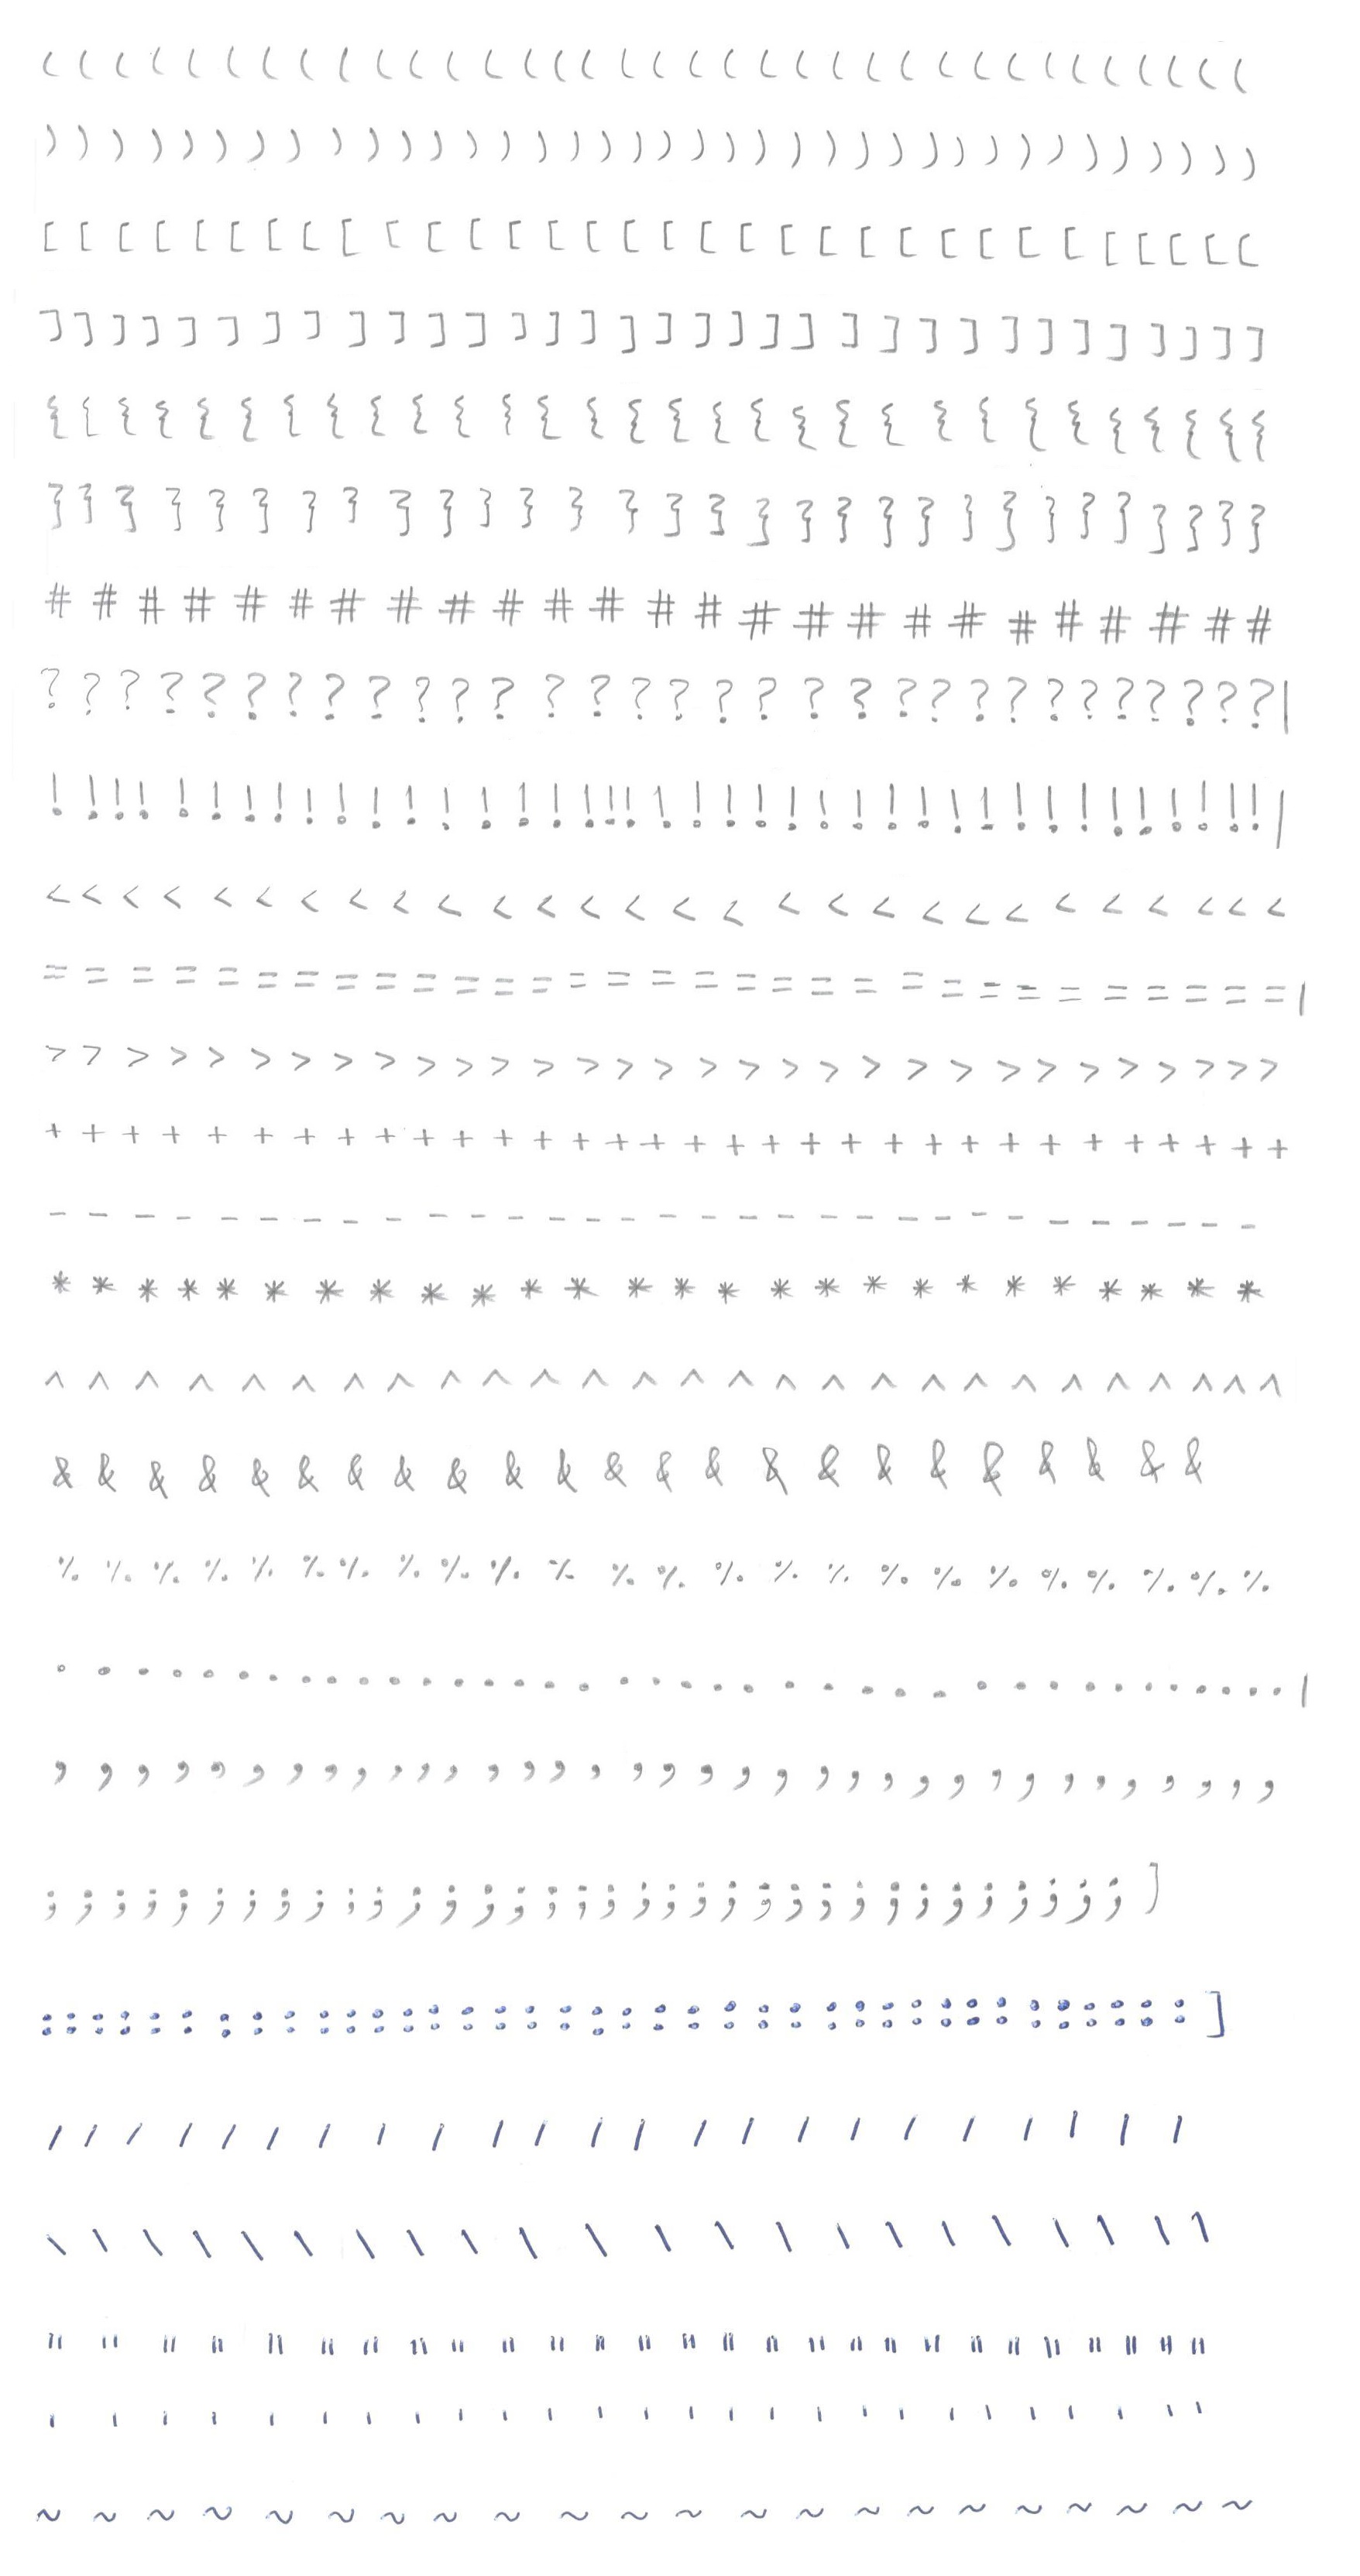 ( ( ( ( ( ( ( ( ( ( ( ( ( ( ( ( ( ( ( ( ( ( ( ( ( ( ( ( ( ( ( ( ( ( (
) ) ) ) ) ) ) ) ) ) ) ) ) ) ) ) ) ) ) ) ) ) ) ) ) ) ) ) ) ) ) ) ) ) ) ) )
[ [ [ [ [ [ [ [ [ [ [ [ [ [ [ [ [ [ [ [ [ [ [ [ [ [ [ [ [ [ [ [
] ] ] ] ] ] ] ] ] ] ] ] ] ] ] ] ] ] ] ] ] ] ] ] ] ] ] ] ] ] ] ] ]
{ { { { { { { { { { { { { { { { { { { { { { { { { { { { { {
} } } } } } } } } } } } } } } } } } } } } } } } } } } } } }
# # # # # # # # # # # # # # # # # # # # # # # # #
? ? ? ? ? ? ? ? ? ? ? ? ? ? ? ? ? ? ? ? ? ? ? ? ? ? ? ? ? ? ? |
! ! ! ! ! ! ! ! ! ! ! ! ! ! ! ! ! ! ! ! ! ! ! ! ! ! ! ! ! ! ! ! ! ! ! ! ! ! |
< < < < < < < < < < < < < < < < < < < < < < < < < < < <
= = = = = = = = = = = = = = = = = = = = = = = = = = = = = = |
> > > > > > > > > > > > > > > > > > > > > > > > > > > > > >
+ + + + + + + + + + + + + + + + + + + + + + + + + + + + + + +
- - - - - - - - - - - - - - - - - - - - - - - - - - - - - -
* * * * * * * * * * * * * * * * * * * * * * * * * *
^ ^ ^ ^ ^ ^ ^ ^ ^ ^ ^ ^ ^ ^ ^ ^ ^ ^ ^ ^ ^ ^ ^ ^ ^ ^ ^
& & & & & & & & & & & & & & & & & & & & & & &
% % % % % % % % % % % % % % % % % % % % % % % %
. . . . . . . . . . . . . . . . . . . . . . . . . . . . . . . . . . . . . |
, , , , , , , , , , , , , , , , , , , , , , , , , , , , , , , , , , ,
; ; ; ; ; ; ; ; ; ; ; ; ; ; ; ; ; ; ; ; ; ; ; ; ; ; ; ; ; ; ; ; ; ; ]
: : : : : : : : : : : : : : : : : : : : : : : : : : : : : : : : : : : : : ]
/ / / / / / / / / / / / / / / / / / / / / / /
\ \ \ \ \ \ \ \ \ \ \ \ \ \ \ \ \ \ \ \ \ \
" " " " " " " " " " " " " " " " " " " " " " " " " " " "
' ' ' ' ' ' ' ' ' ' ' ' ' ' ' ' ' ' ' ' ' ' ' ' ' '
~ ~ ~ ~ ~ ~ ~ ~ ~ ~ ~ ~ ~ ~ ~ ~ ~ ~ ~ ~ ~ ~